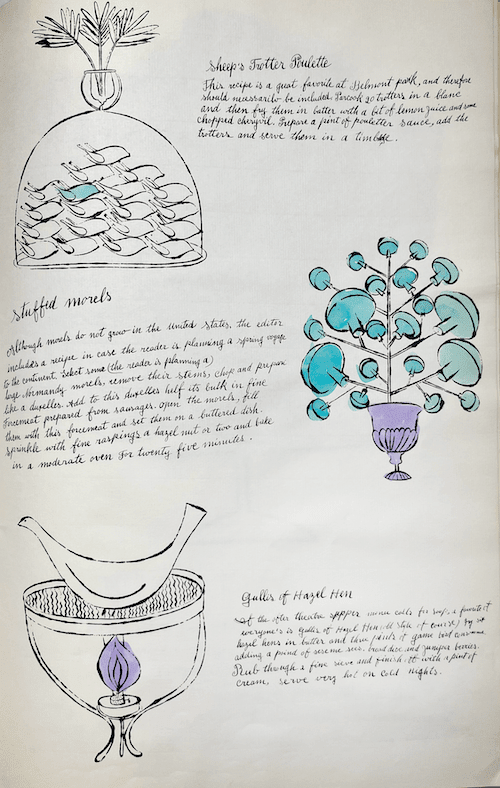 Sheep's Trotter Poulette
This recipe is a great favorite at Belmont park, and therefore
should necessarily be included. Parcook 20 trotters in a blanc
and then fry them in batter with a bit of lemon juice and some
chopped chervil. Prepare a pint of poulettes sauce, add the
trotters and serve them in a timbale.
Stuffed morels
Although morels do not grow in the United States, the editor
includes a recipe in case the reader is planning a spring voyage
to the continent. Select some (the reader is planning a)
large Normandy morels, remove their stems, chop and prepare
like a duxelles. Add to this duxelles half its bulk in fine
forcemeat prepared from sausages. Open the morels, fill
them with this forcemeat and set them on a buttered dish.
Sprinkle with fine raspings a hazel nut or two and bake
in a moderate oven for twenty five minutes.
Gullis of Hazel Hen
At the after theatre supper menu calls for soup, a favorite of
everyone's is Gullis of Hazel Hen (old style of course) fry
hazel hens in butter and three pints of game
adding a pound of sesame bread dice and juniper berries.
Rub through a fine sieve and finish it with a pint of
cream, serve very hot on cold nights.